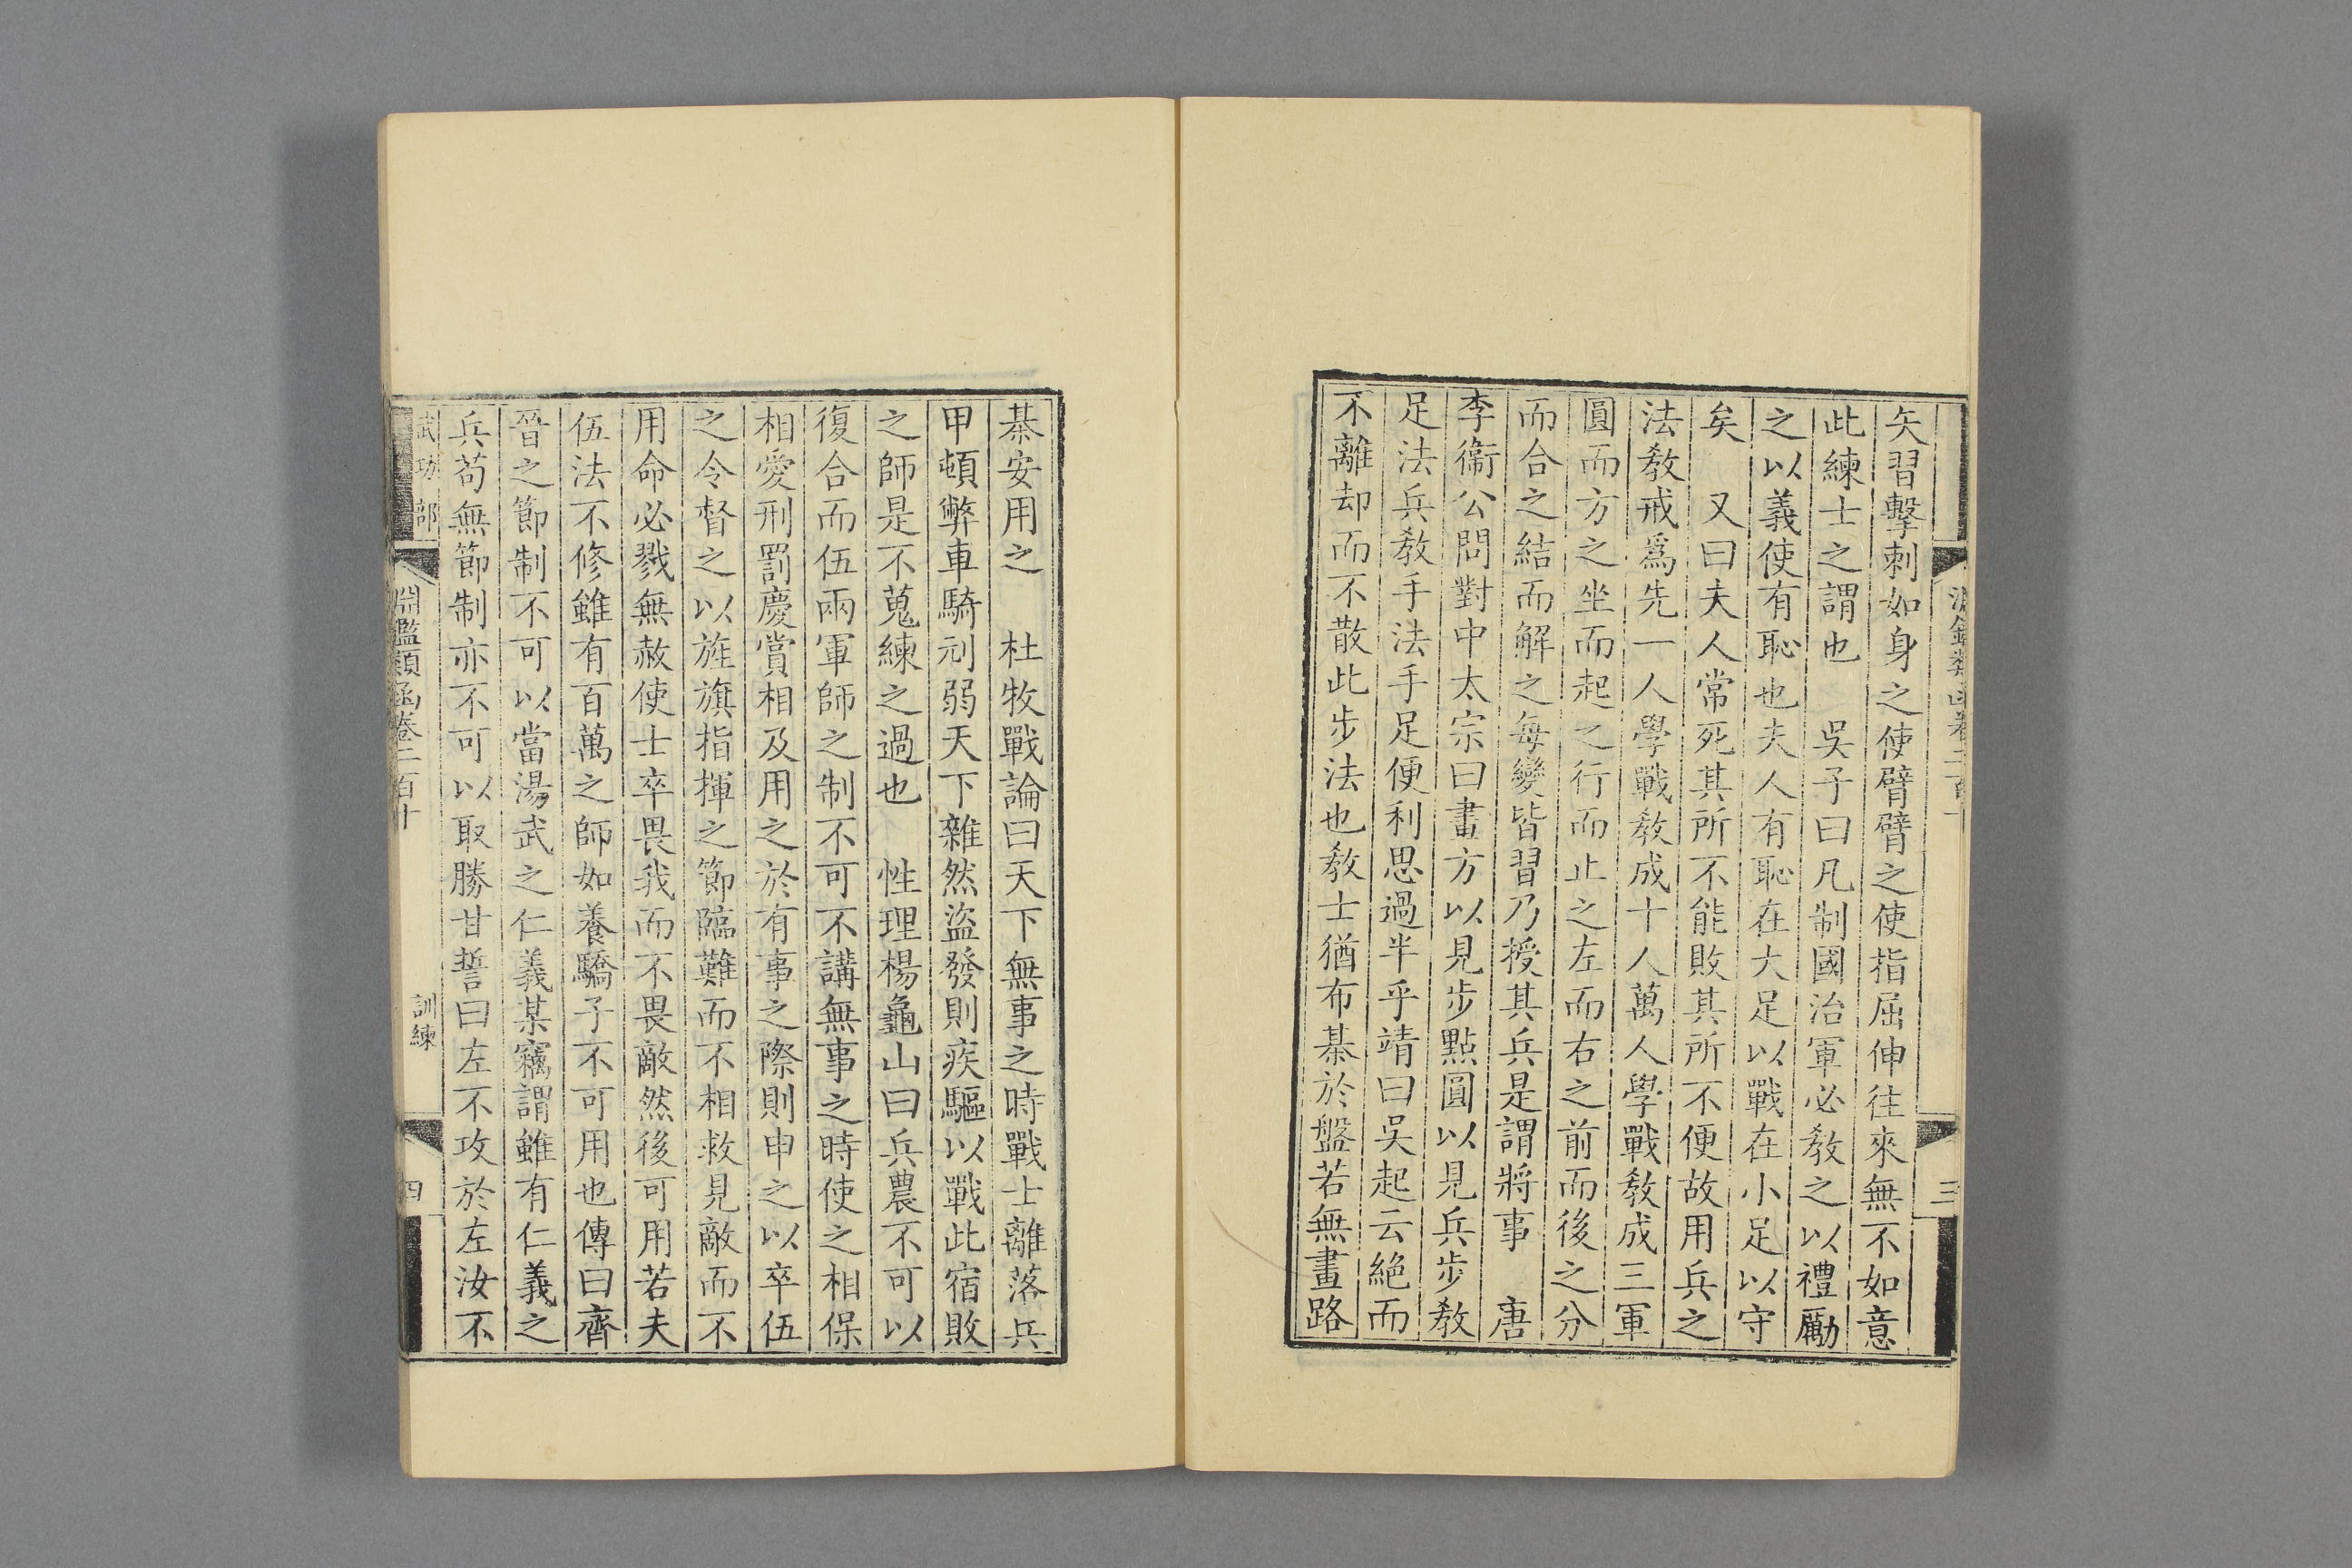 淵鑑類函卷二百十
三
矢習擊刺如身之使臂臂之使指屈伸往來無不如意
此練士之謂也　吳子曰凡制國治軍必教之以禮勵
之以義使有恥也夫人有恥在大足以戰在小足以守
矣　又曰夫人常死其所不能敗其所不便故用兵之
法教戒爲先一人學戰教成十人萬人學戰教成三軍
圓而方之坐而起之行而止之左而右之前而後之分
而合之結而解之每變皆習乃授其兵是謂將事　唐
李衞公問對中太宗曰畫方以見步點圓以見兵步教
足法兵教手法手足便利思過半乎靖曰吳起云絕而
不離却而不散此步法也教士猶布棊於盤若無畫路
棊安用之　杜牧戰論曰天下無事之時戰士離落兵
甲頓弊車騎刓弱天下雜然盜發則疾驅以戰此宿敗
之師是不蒐練之過也　性理楊龜山曰兵農不可以
復合而伍兩軍師之制不可不講無事之時使之相保
相愛刑罰慶賞相及用之於有事之際則申之以卒伍
之令督之以旌旗指揮之節臨難而不相救見敵而不
用命必戮無赦使士卒畏我而不畏敵然後可用若夫
伍法不修雖有百萬之師如養驕子不可用也傳曰齊
晉之節制不可以當湯武之仁義某竊謂雖有仁義之
兵苟無節制亦不可以取勝甘誓曰左不攻於左汝不
武功部
淵鑑類函卷二百十
訓練
四